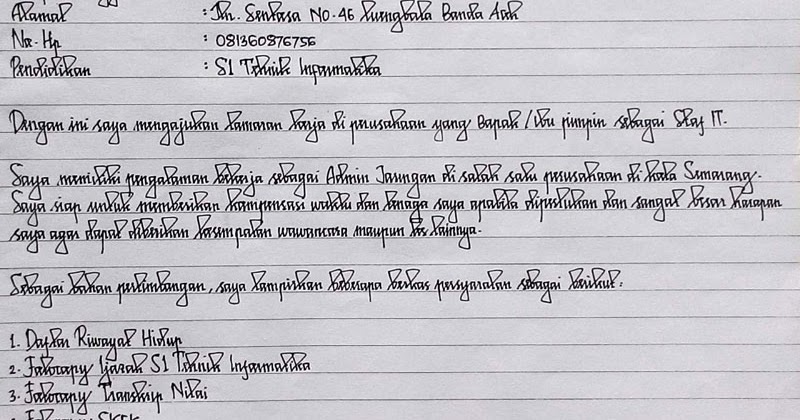 Alamat : Jln. Sentosa No. 46 Luengbata Banda Aceh
No. Hp : 081360876756
Pendidikan : S1 Teknik Informatika
Dengan ini saya mengajukan lamaran kerja di perusahaan yang Bapak/Ibu pimpin sebagai Staf IT.
Saya memiliki pengalaman bekerja sebagai Admin Jaringan di salah satu perusahaan di kota Semarang.
Saya siap untuk memberikan kompensasi waktu dan tenaga saya apabila diperlukan dan sangat besar harapan
saya agar dapat diberikan kesempatan wawancara maupun tes lainnya.
Sebagai bahan pertimbangan, saya lampirkan beberapa berkas persyaratan sebagai berikut:
1. Daftar Riwayat Hidup
2. Fotocopy Ijazah S1 Teknik Informatika
3. Fotocopy Transkip Nilai
4. Fotocopy SKCK